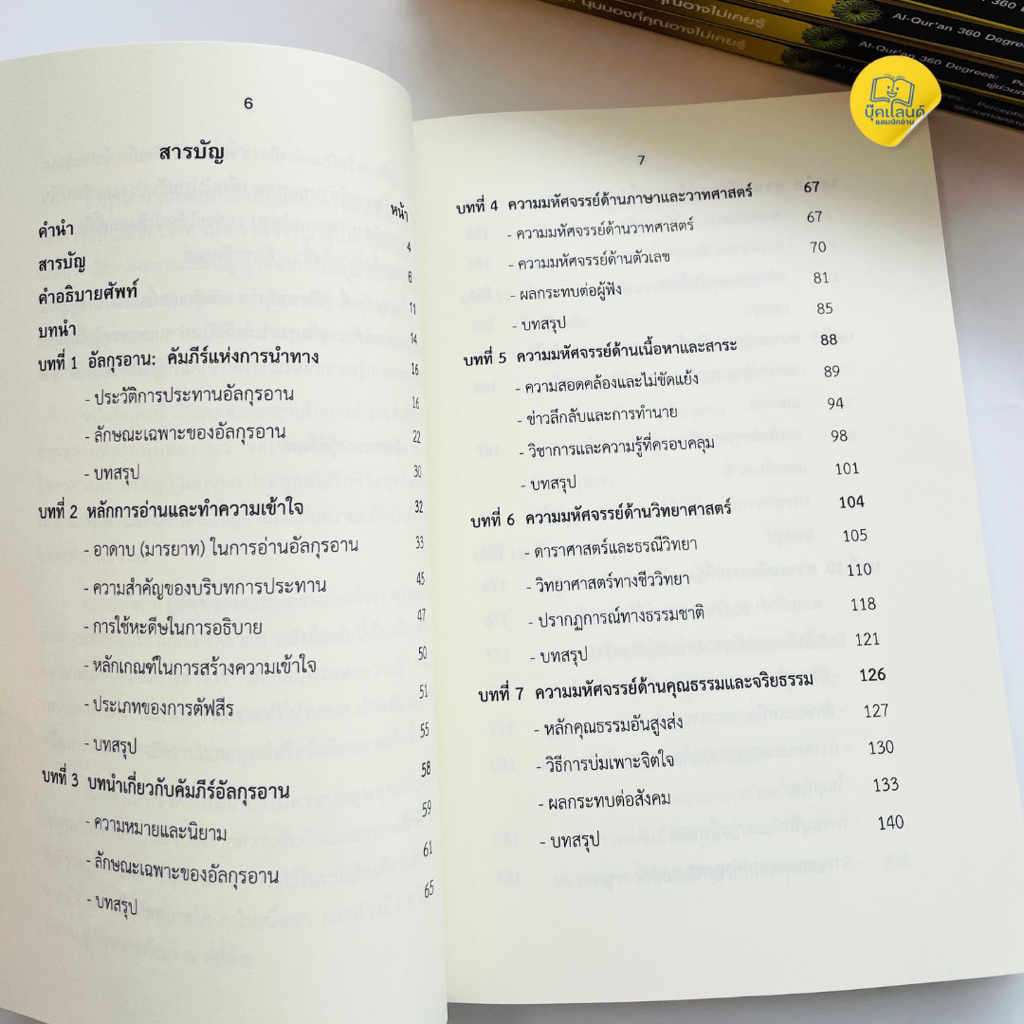 มุมมองที่คุณอาจไม่เคยรู้
Al-Qur'an 360 Degrees:
Al-Qur'an 360 Degrees:
บุ๊คแลนด์
แดนนักอ่าน
6
สารบัญ
หน้า
คำนำ 4
สารบัญ 6
คำอธิบายศัพท์ 11
บทนำ 14
บทที่ 1 อัลกุรอาน: คัมภีร์แห่งการนำทาง 16
- ประวัติการประทานอัลกุรอาน 16
- ลักษณะเฉพาะของอัลกุรอาน 22
- บทสรุป 30
บทที่ 2 หลักการอ่านและทำความเข้าใจ 32
- อาดาบ (มารยาท) ในการอ่านอัลกุรอาน 33
- ความสำคัญของบริบทการประทาน 45
- การใช้หะดีษในการอธิบาย 47
- หลักเกณฑ์ในการสร้างความเข้าใจ 50
- ประเภทของการตัฟสีร 51
- บทสรุป 55
บทที่ 3 บทนำเกี่ยวกับคัมภีร์อัลกุรอาน 58
- ความหมายและนิยาม 59
- ลักษณะเฉพาะของอัลกุรอาน 61
- บทสรุป 65
7
บทที่ 4 ความมหัศจรรย์ด้านภาษาและวาทศาสตร์ 67
- ความมหัศจรรย์ด้านวาทศาสตร์ 67
- ความมหัศจรรย์ด้านตัวเลข 70
- ผลกระทบต่อผู้ฟัง 81
- บทสรุป 85
บทที่ 5 ความมหัศจรรย์ด้านเนื้อหาและสาระ 88
- ความสอดคล้องและไม่ขัดแย้ง 89
- ข่าวลึกลับและการทำนาย 94
- วิชาการและความรู้ที่ครอบคลุม 98
- บทสรุป 101
บทที่ 6 ความมหัศจรรย์ด้านวิทยาศาสตร์ 104
- ดาราศาสตร์และธรณีวิทยา 105
- วิทยาศาสตร์ทางชีววิทยา 110
- ปรากฏการณ์ทางธรรมชาติ 118
- บทสรุป 121
บทที่ 7 ความมหัศจรรย์ด้านคุณธรรมและจริยธรรม 126
- หลักคุณธรรมอันสูงส่ง 127
- วิธีการบ่มเพาะจิตใจ 130
- ผลกระทบต่อสังคม 133
- บทสรุป 140